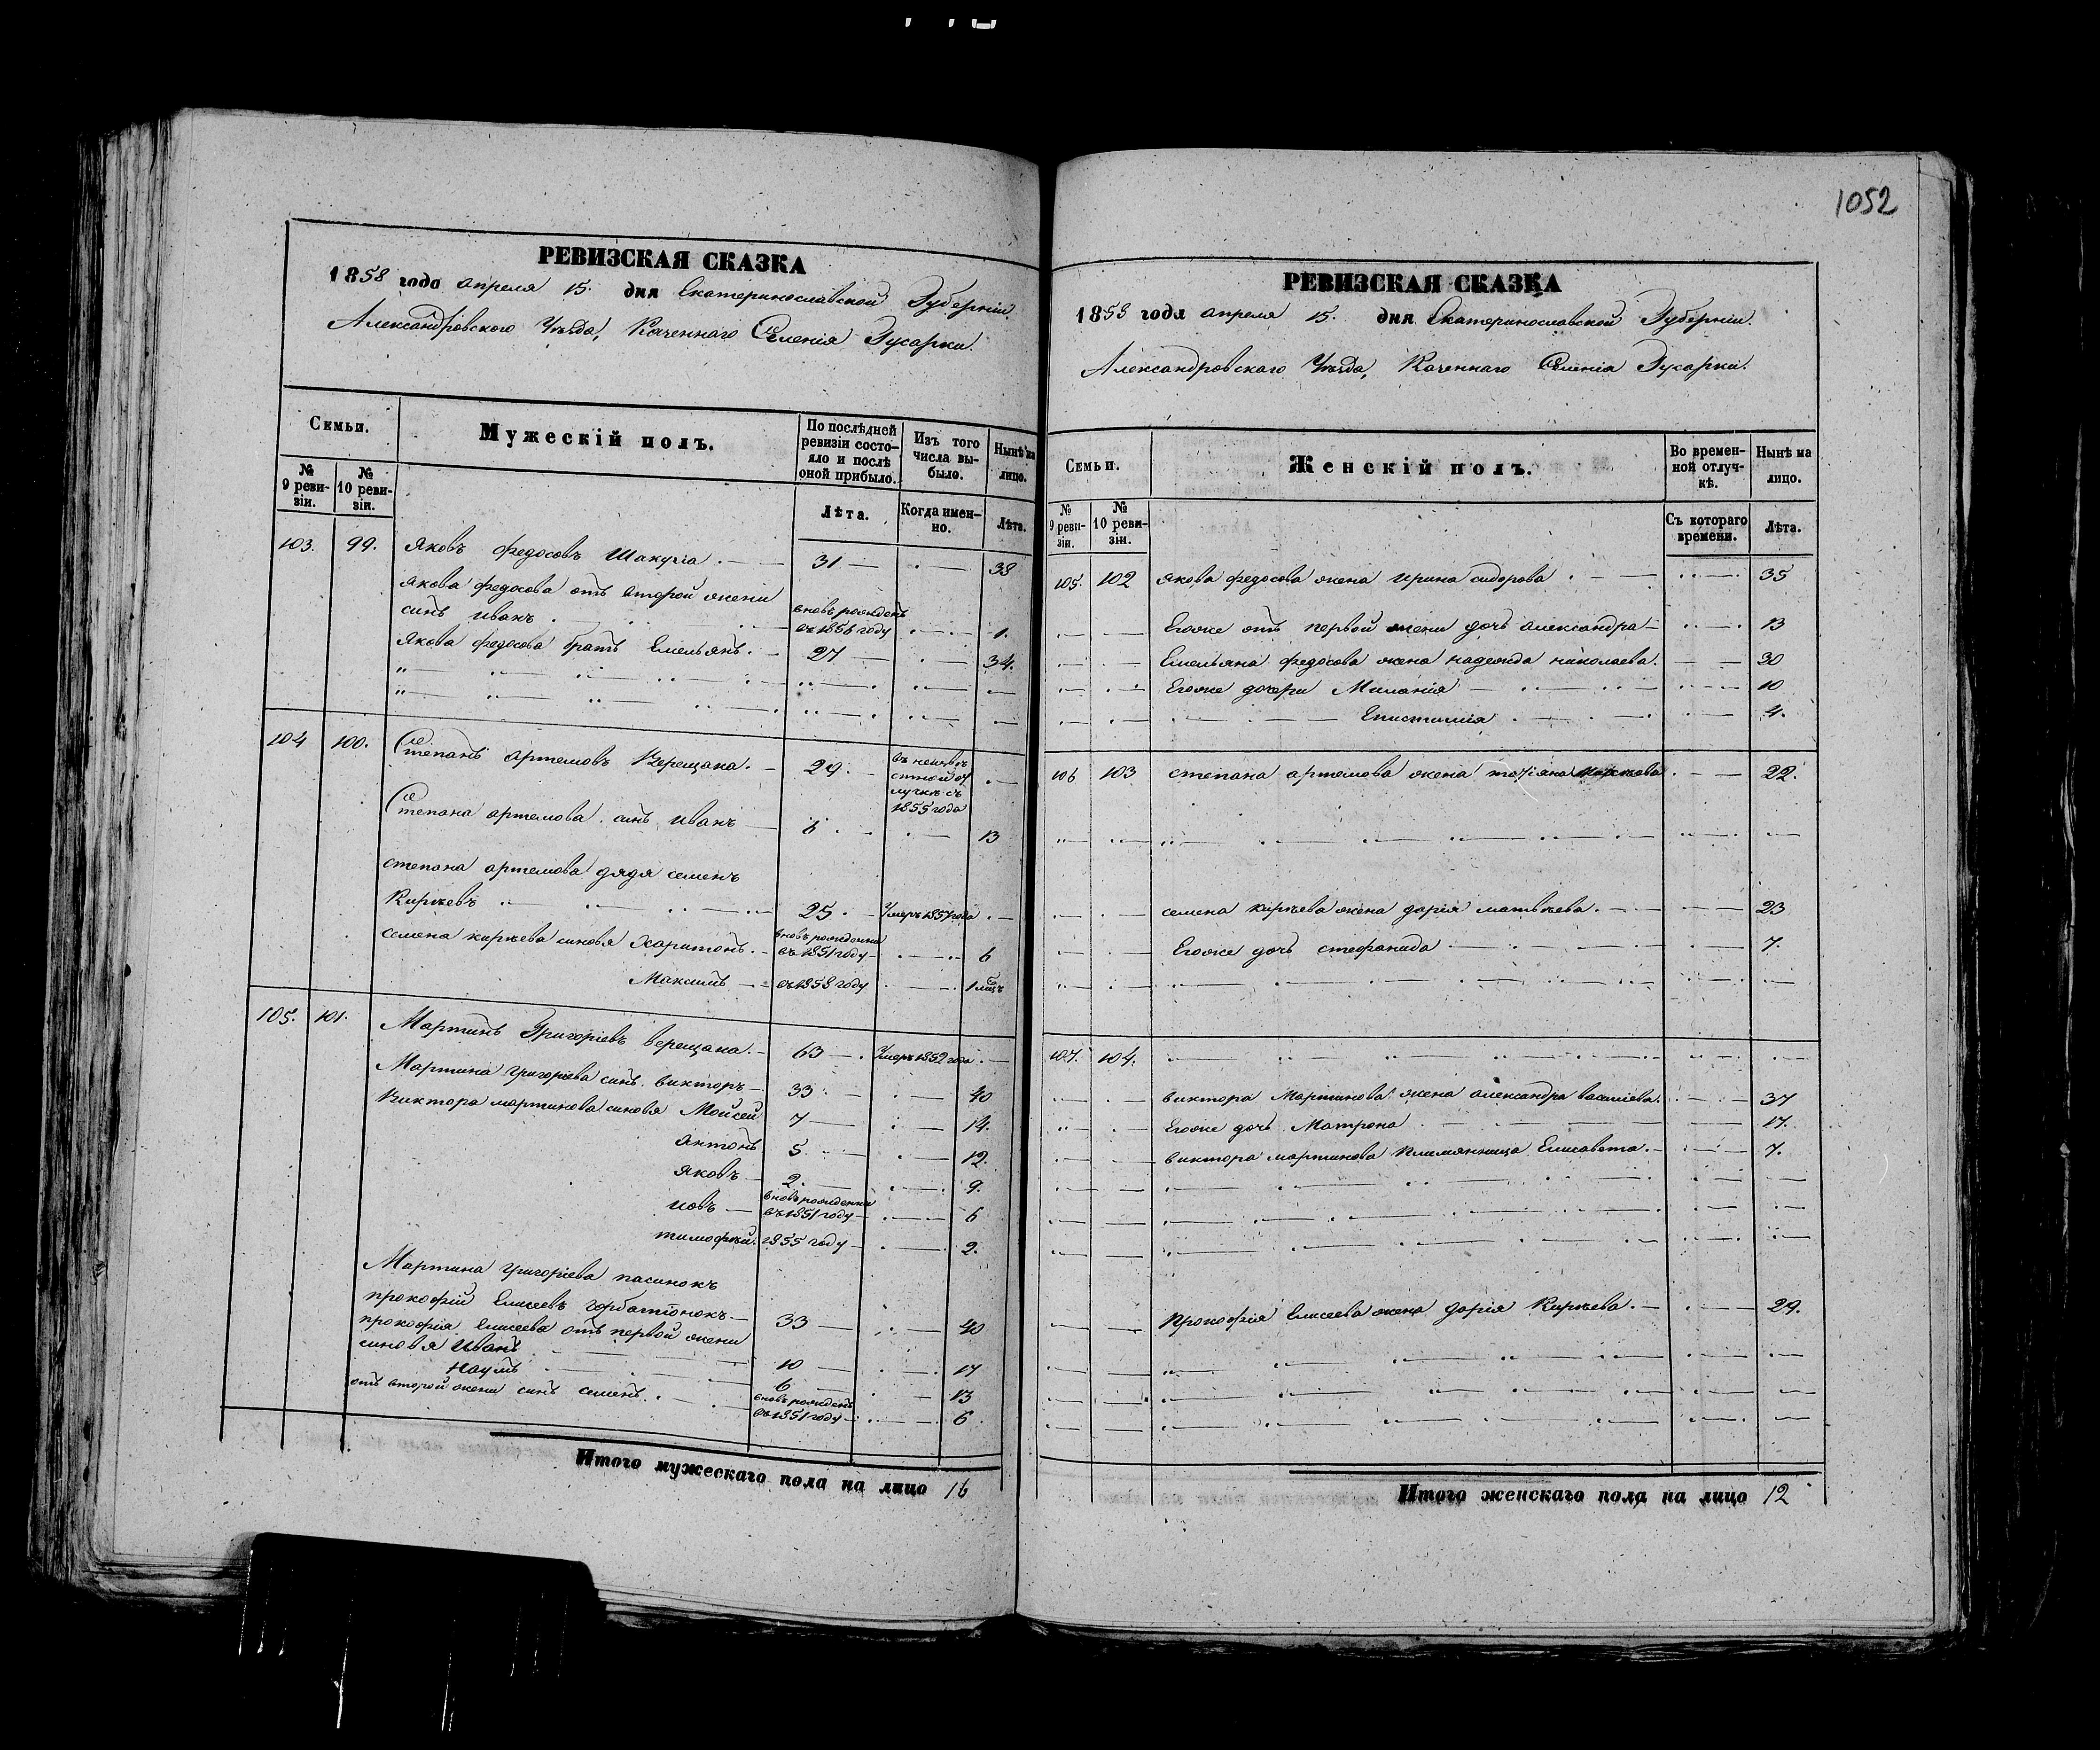 1052
РЕВИЗСКАЯ СКАЗКА
1858 года апреля 15. дня Екатеринославской Губерніи.
Александровского Уѣзда, Казеннаго Селенія Гусарки.
Семьи.
Мужескій полъ.
По послѣдней ревизіи состо-
яло и послѣ
оной прибыло.
Изъ того
числа вы-
было.
Нынѣ на
лицо.
№
9 реви-
зіи.
№
10 реви-
зіи.
Лѣта.
Когда имен-
но.
Лѣта.
103. 99. Яковъ Федосовъ 31 — . — 38
Якова Федосова отъ второй жени
синъ Иванъ . вновь рожденъ
въ 1856 году . — 1.
Якова Федосова братъ Емельянъ. — 27 — . — 34.
104 100. Степанъ Артемовъ Верещака. — 29. — въ неизвѣ
стной от
лучкѣ съ
1855 года . —
Степана Артемова синъ Иванъ — 6 . — . — 13
Степана Артемова дядя Семенъ
Кирѣевъ 25. — Умеръ 1857 года . —
Семена Кирѣева синовя Харитонъ. — вновь рожденни
въ 1851 году — . — 6
Максимъ — въ 1858 году . — 1 мѣсъ
105. 101. Мартинъ Григоріевъ Верещака. — 63 — . Умеръ 1852 года . —
Мартина Григоріева синъ Викторъ — 33 . — . — 40
Виктора Мартинова синовя Мойсей 7 — . — 14.
Антонъ 5. — . — 12.
Яковъ — 2. — . — 9.
Иовъ — вновь рожденни
въ 1851 году — . — 6
Тимофѣй. 1855 году — . — 2.
Мартина Григоріева пасинокъ
Прокофій Елисеевъ Горбатюнокъ — 33 — . — 40
Прокофія Елисеева отъ первой жени
синовя Иванъ . — 10 — . — 17
Наумъ — 6 — . — 13
отъ второй жени синъ Семенъ. . — вновь рожденъ
въ 1851 году — . — 6
Итого мужескаго пола на лицо 16
РЕВИЗСКАЯ СКАЗКА
1858 года апреля 15. дня Екатеринославской Губерніи.
Александровскаго Уѣзда, Казеннаго Селенія Гусарки.
Семьи.
Женскій полъ.
Во времен-
ной отлуч-
кѣ.
Нынѣ на
лицо.
№
9 реви-
зіи.
№
10 реви-
зіи.
Съ котораго
времени.
Лѣта.
105. 102 Якова Федосова жена Ирина Сидорова . — 35
Егоже отъ первой жени дочь Александра — 13
Емельяна Федосова жена Надежда Николаева. — 30
Егоже дочери Миланія — 10
Епистимія . — 4.
106 103 Степана Артемова жена Татіяна . — 22.
Семена Кирѣева жена Дарія Матвѣева. — 23
Егоже дочь Стефанида — 7.
107. 104.
Виктора Мартинова жена Александра Василіева. — 37
Егоже дочь Матрона . — 17.
Виктора Мартинова племянница Елисавета. — 7.
Прокофія Елисеева жена Дарія Кирѣева. — 29.
Итого женскаго пола на лицо 12